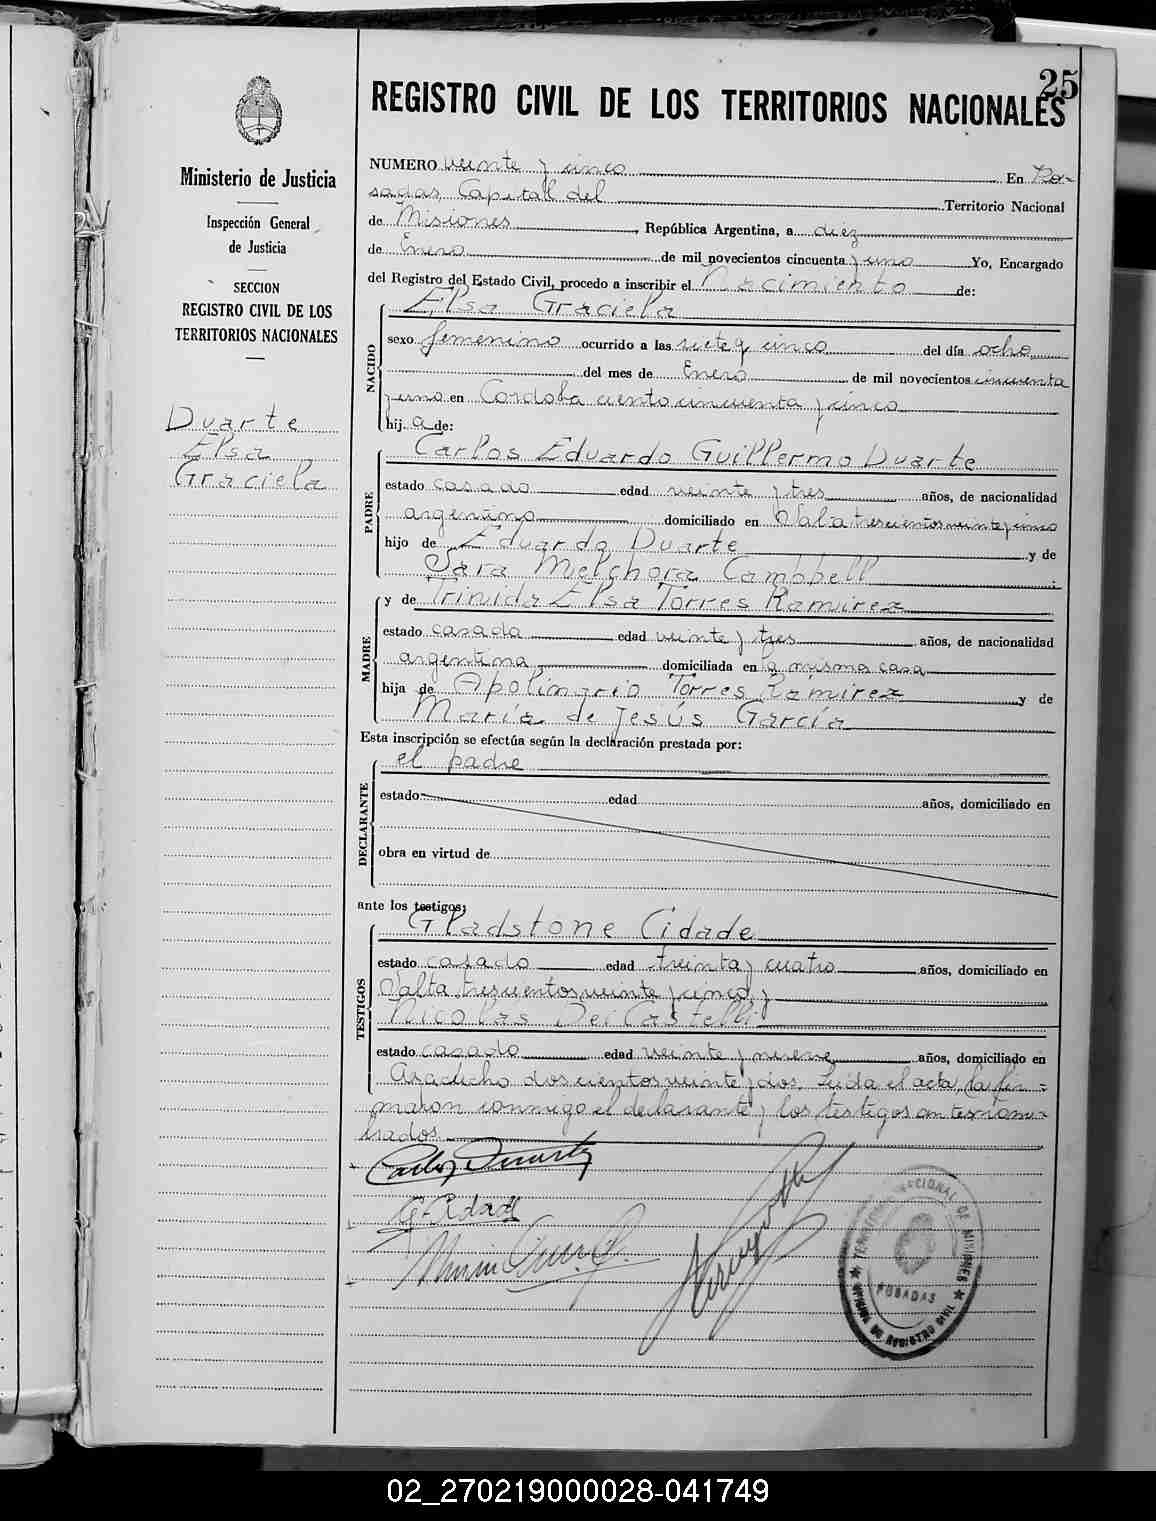 25
REGISTRO CIVIL DE LOS TERRITORIOS NACIONALES
Ministerio de Justicia
Inspección General
de Justicia
SECCION
REGISTRO CIVIL DE LOS
TERRITORIOS NACIONALES
Duarte
Elsa
Graciela
NUMERO veinte y cinco En Po-
sadas, Capital del Territorio Nacional
de Misiones, República Argentina, a diez
de Enero de mil novecientos cincuenta y uno Yo, Encargado
del Registro del Estado Civil, procedo a inscribir el Nacimiento de:
Elsa Graciela
NACIDO
sexo femenino ocurrido a las siete y cinco del día ocho
del mes de Enero de mil novecientos cincuenta
y uno en Cordoba ciento cincuenta y cinco
hij a de:
Carlos Eduardo Guillermo Duarte
PADRE
estado casado edad veinte y tres años, de nacionalidad
argentino domiciliado en Salta trescientos veinte y cinco
hijo de Eduardo Duarte y de
Sara Melchora Campbell;
y de Trinida Elsa Torres Ramirez
MADRE
estado casada edad veinte y tres años, de nacionalidad
argentina domiciliada en la misma casa
hija de Apolinario Torres Ramirez y de
María de Jesús García
Esta inscripción se efectúa según la declaración prestada por:
el padre
DECLARANTE
estado edad años, domiciliado en
obra en virtud de
ante los testigos:
Gladstone Cidade
TESTIGOS
estado casado edad treinta y cuatro años, domiciliado en
Salta trescientos veinte y cinco y
Nicolas Dei Castelli
estado casado edad veinte y nueve años, domiciliado en
Ayacucho doscientos veinte y dos. Leida el acta, la fir-
maron conmigo el declarante y los testigos
Carlos Duarte
TERRITORIO NACIONAL DE MISIONES
POSADAS
OFICINA DE REGISTRO CIVIL
02_270219000028-041749